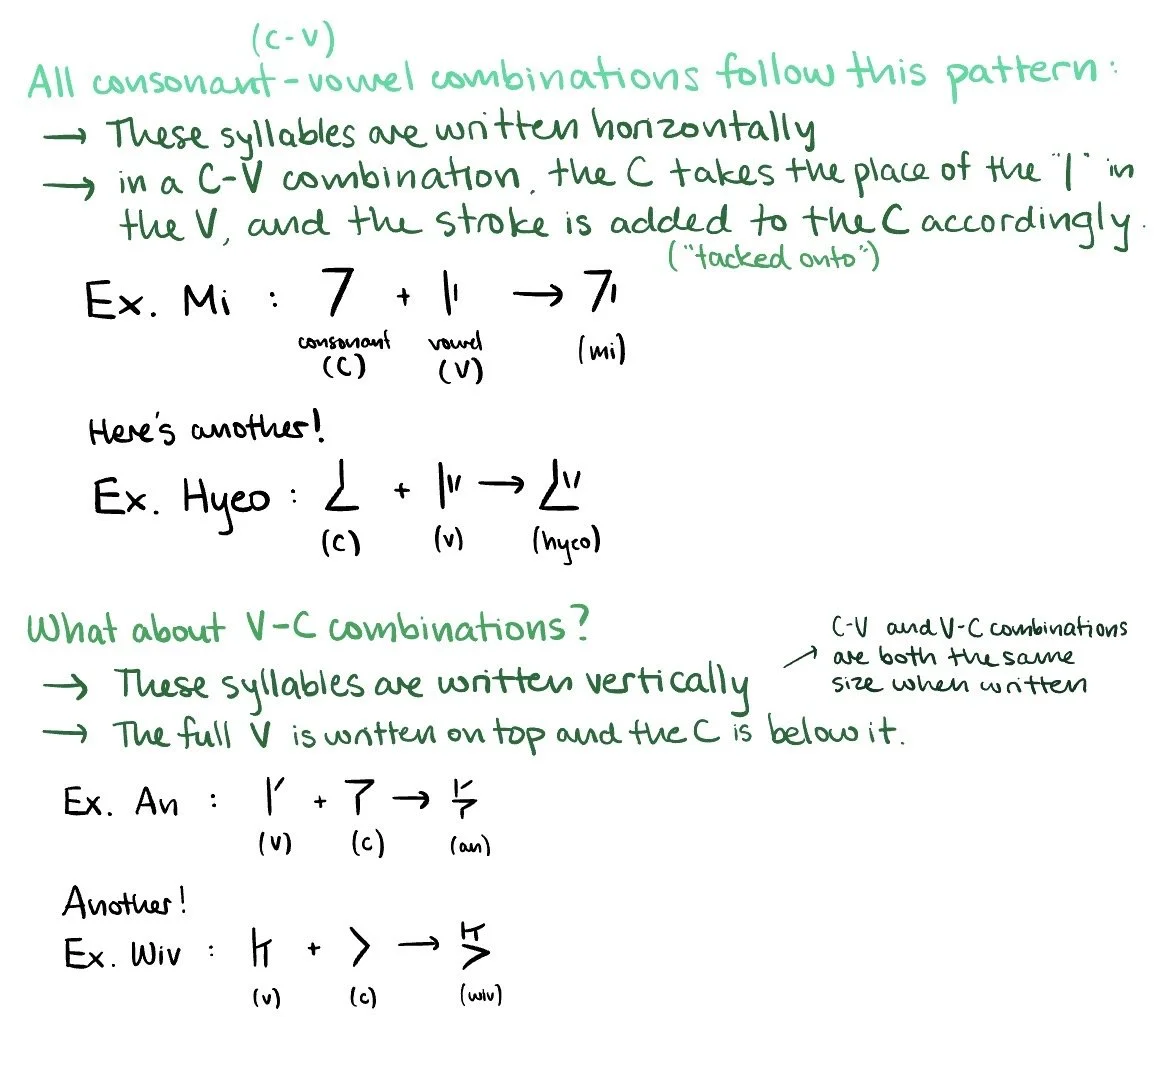 (C-V)
All consonant-vowel combinations follow this pattern:
→ These syllables are written horizontally
→ in a C-V combination, the C takes the place of the "|" in
the V, and the stroke is added to the C accordingly.
("tacked onto")
Ex. Mi : + → 
consonant vowel (mi)
(C) (V)
Here's another!
Ex. Hyeo : + →
(C) (V) (hyeo)
What about V-C combinations?
C-V and V-C combinations
→ are both the same
size when written
→ These syllables are written vertically
→ The full V is written on top and the C is below it.
Ex. An : + →
(V) (C) (an)
Another!
Ex. Wiv : + →
(V) (C) (wiv)